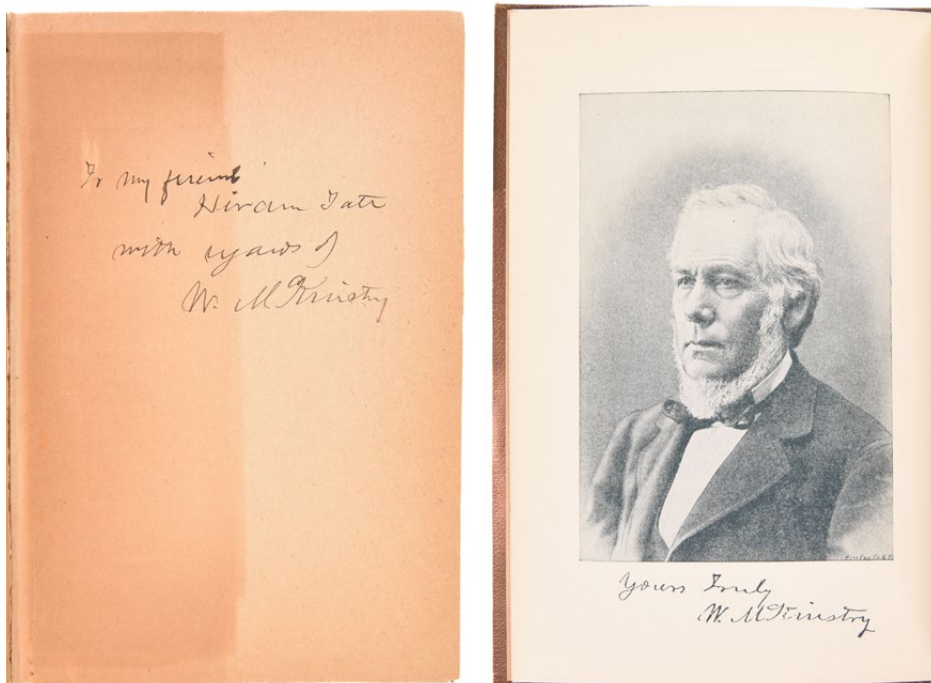 To my friend
Hiram Tate
with regards of
W. McKinstry
Yours Truly
W. McKinstry